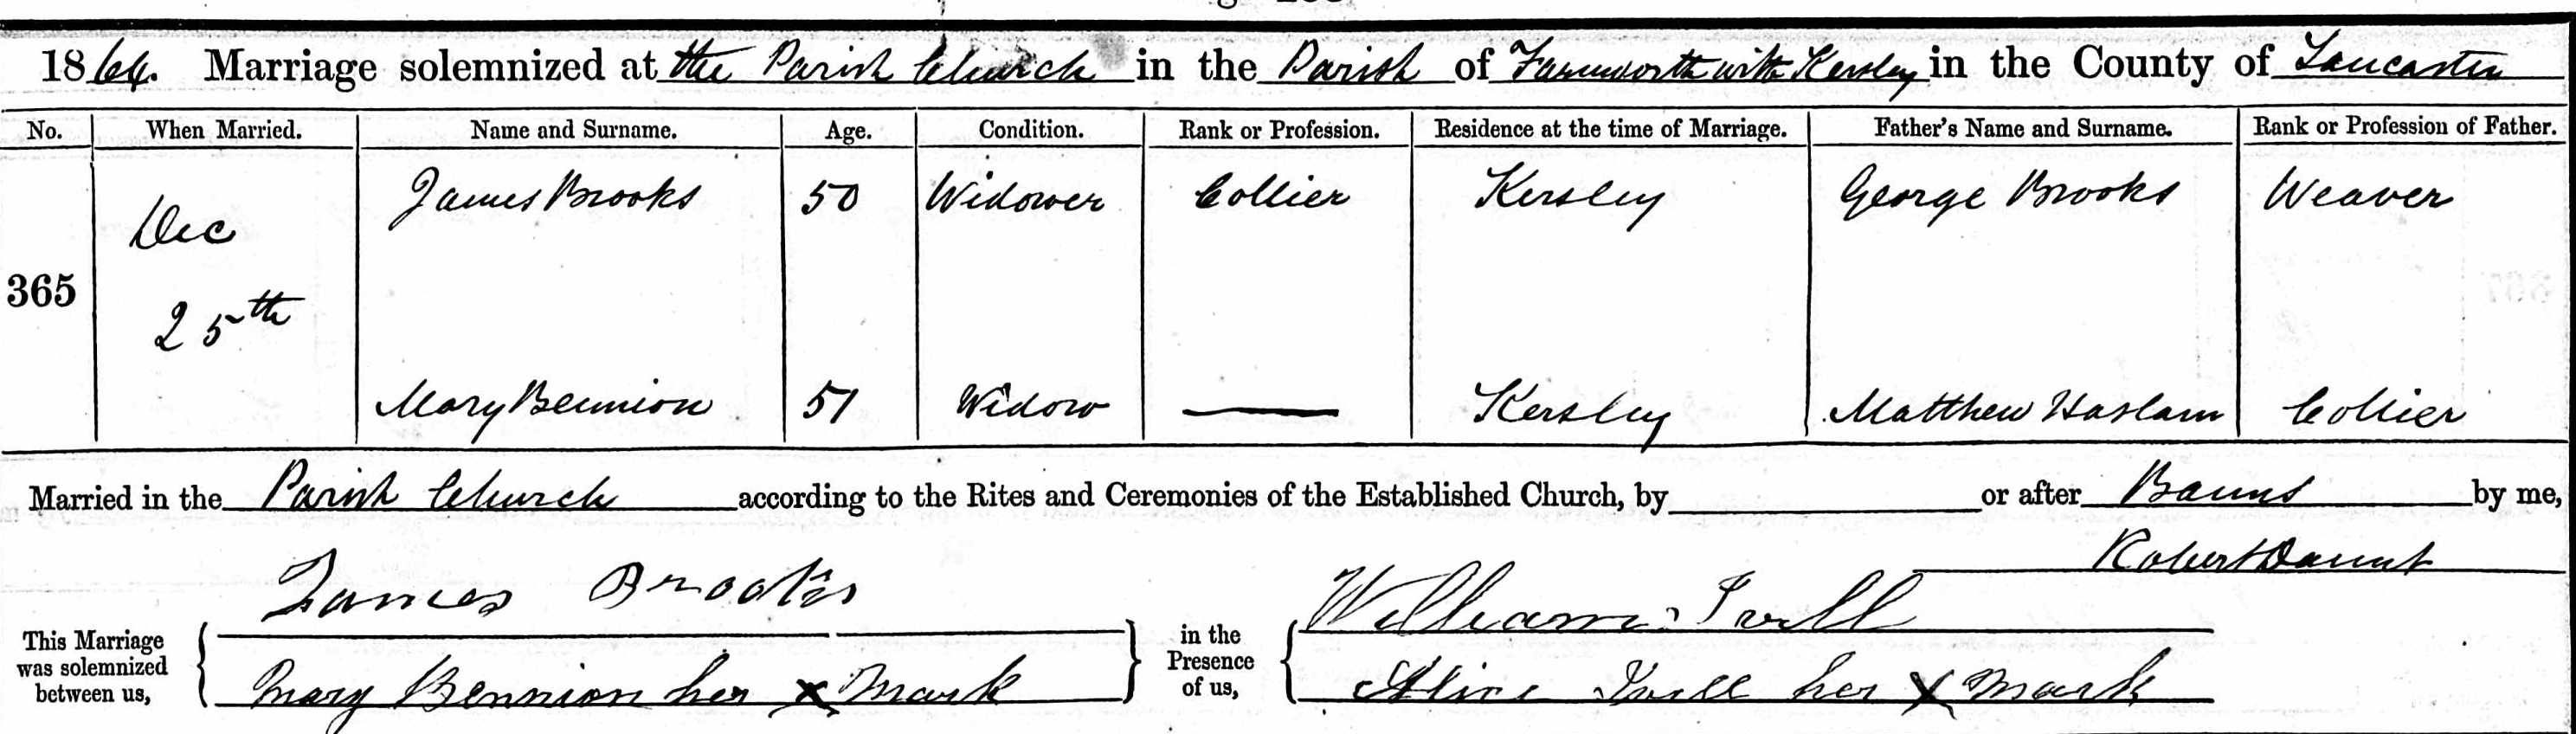 1864. Marriage solemnized at the Parish Church in the Parish of Farnworth with Kersley in the County of Lancaster
No. When Married. Name and Surname. Age. Condition. Rank or Profession. Residence at the time of Marriage. Father's Name and Surname. Rank or Profession of Father.
365 Dec 25th James Brooks 50 Widower Collier Kersley George Brooks Weaver
Mary Bennion 51 Widow Kersley Matthew Haslam Collier
Married in the Parish Church according to the Rites and Ceremonies of the Established Church, by or after Banns by me,
Robert Daunt
James Brooks William
This Marriage was solemnized between us, in the Presence of us,
Mary Bennion her x Mark Alice her x Mark